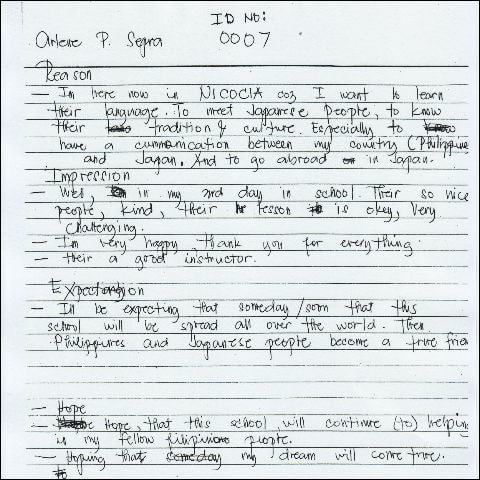 ID NO:
Arlene P. Segra 0007
Reason
– Im here now in NICOCIA coz I want to learn
their language. To meet Japanese people, to know
their tradition & culture. Especially to
have a communication between my country (Philippine
and Japan. And to go abroad in Japan.
Impression
– Well, in my 2nd day in school. Their so nice
people, kind, their lesson is okey, Very
Challenging.
– Im very happy, thank you for everything
– their a good instructor.
Expectation
– Ill be expecting that someday/soon that this
school will be spread all over the world. Then
Philippines and Japanese people become a true frien
– Hope
– Hope, that this school, will continue (to) helping
is my fellow filipino people.
– Hoping that someday my dream will come true.